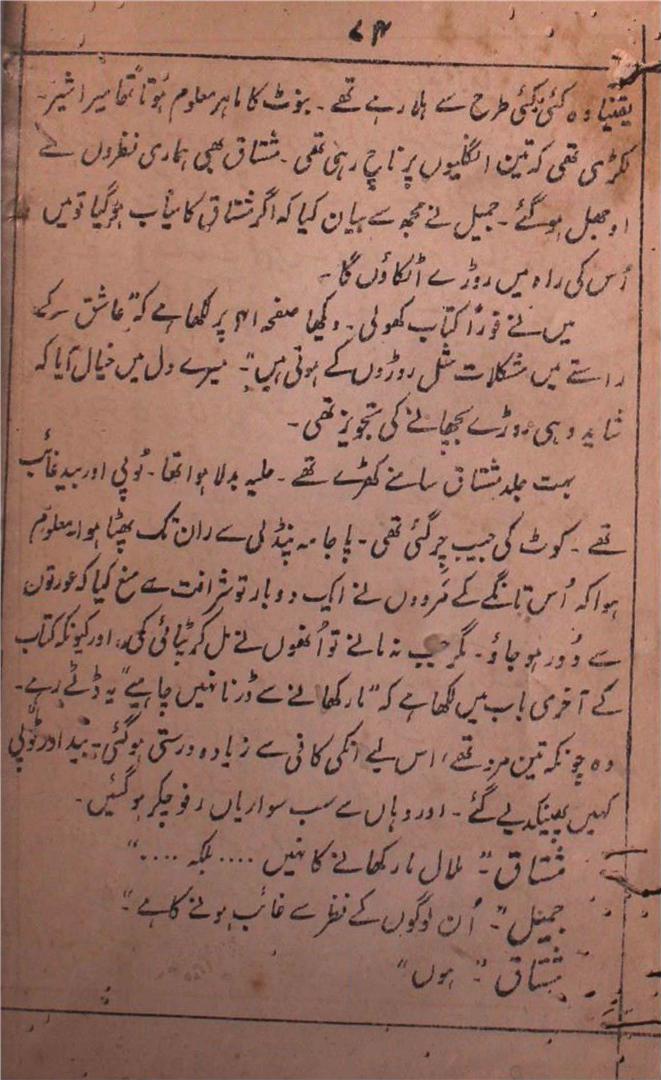 ۷۴
یقنیاً وہ کئی کئی طرح سے ہلا رہے تھے ۔ بنوٹ کا ماہر معلوم ہوتا تھا میرا شیر ۔
لکڑی تھی کہ تین انگلیوں پر ناچ رہی تھی ۔ مشتاق بھی ہماری نظروں سے
اوجھل ہو گئے ۔ جمیل نے مجھ سے بیان کیا کہ اگر مشتاق کامیاب ہو گیا تو میں
اُس کی راہ میں روڑے اٹکاؤں گا ۔
میں نے فوراً کتاب کھولی ۔ دیکھا صفحہ ۴۱ پر لکھا ہے کہ "عاشق کے
راستے میں مشکلات مثل روڑوں کے ہوتی ہیں" ۔ میرے دل میں خیال آیا کہ
شاید وہی روڑے بچھانے کی تجویز تھی ۔
بہت جلد مشتاق سامنے کھڑے تھے ۔ حلیہ بدلا ہوا تھا ۔ ٹوپی اور بید غائب
تھے ۔ کوٹ کی جیب چر گئی تھی ۔ پاجامہ پنڈلی سے ران تک پھٹا ہوا ۔ معلوم
ہوا کہ اُس تانگے کے مَردوں نے ایک دو بار تو شرافت سے منع کیا کہ عورتوں
سے دُور ہو جاؤ ۔ مگر جب نہ مانے تو اُنھوں نے مل کر پٹائی کی، اور کیونکہ کتاب
کے آخری باب میں لکھا ہے کہ "مار کھانے سے ڈرنا نہیں چاہیے" یہ ڈٹے رہے ۔
وہ چونکہ تین مرد تھے، اس لیے انکی کافی سے زیادہ درستی ہو گئی ۔ بید اور ٹوپی
کہیں پھینک دیے گئے ۔ اور وہاں سے سب سواریاں رفو چکر ہو گئیں ۔
مشتاق "۔ ملال مار کھانے کا نہیں .... بلکہ ...."
جمیل "۔ اُن لوگوں کے نظر سے غائب ہونے کا ہے"
مشتاق "۔ ہوں"